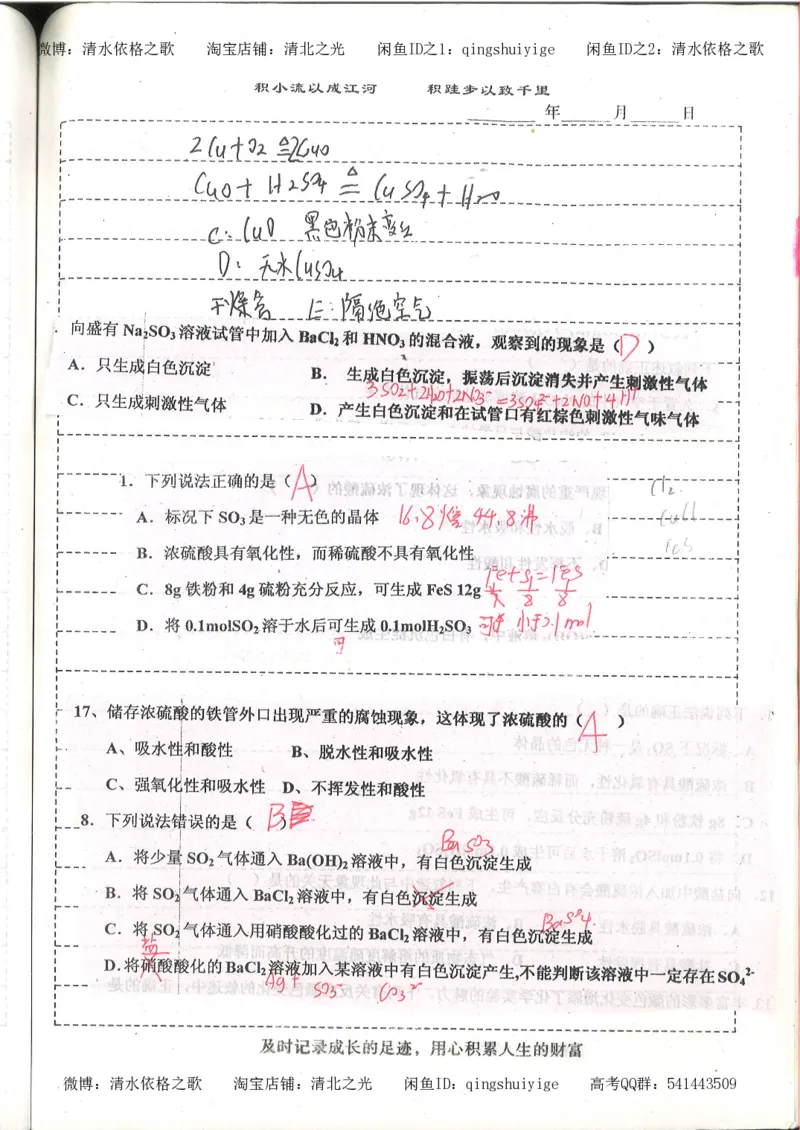 微博：清水依格之歌 淘宝店铺：清北之光 闲鱼ID之1：qingshuiyige 闲鱼ID之2：清水依格之歌
积小流以成江河 积跬步以致千里
年 月 日
2Cu+O2 ≜ 2CuO
CuO + H2SO4 ≜ CuSO4 + H2O
C: CuO 黑色粉末变红
D: 无水CuSO4
干燥管 E:隔绝空气
向盛有 Na₂SO₃ 溶液试管中加入 BaCl₂ 和 HNO₃ 的混合液，观察到的现象是（D）
A．只生成白色沉淀 B． 生成白色沉淀，振荡后沉淀消失并产生刺激性气体
3SO2+2H2O+2NO3⁻=3SO4²⁻+2NO+4H⁺
C．只生成刺激性气体 D．产生白色沉淀和在试管口有红棕色刺激性气味气体
1．下列说法正确的是（A）
Cl2
A．标况下 SO₃ 是一种无色的晶体 16.8熔 44.8沸
CuCl
B．浓硫酸具有氧化性，而稀硫酸不具有氧化性
FeS
Fe+S=FeS
C．8g 铁粉和 4g 硫粉充分反应，可生成 FeS 12g
8 8
D．将 0.1molSO₂ 溶于水后可生成 0.1molH₂SO₃ 可逆 小于0.1mol
可
17、储存浓硫酸的铁管外口出现严重的腐蚀现象，这体现了浓硫酸的（A）
A、吸水性和酸性 B、脱水性和吸水性
C、强氧化性和吸水性 D、不挥发性和酸性
8．下列说法错误的是（B）
BaSO3
A．将少量 SO₂ 气体通入 Ba(OH)₂ 溶液中，有白色沉淀生成
B．将 SO₂ 气体通入 BaCl₂ 溶液中，有白色沉淀生成
BaSO4
C．将 SO₂ 气体通入用硝酸酸化过的 BaCl₂ 溶液中，有白色沉淀生成
盐
D.将硝酸酸化的 BaCl₂ 溶液加入某溶液中有白色沉淀产生,不能判断该溶液中一定存在 SO₄²⁻
Ag+ SO3²⁻ CO3²⁻
及时记录成长的足迹，用心积累人生的财富
微博：清水依格之歌 淘宝店铺：清北之光 闲鱼ID：qingshuiyige 高考QQ群：541443509